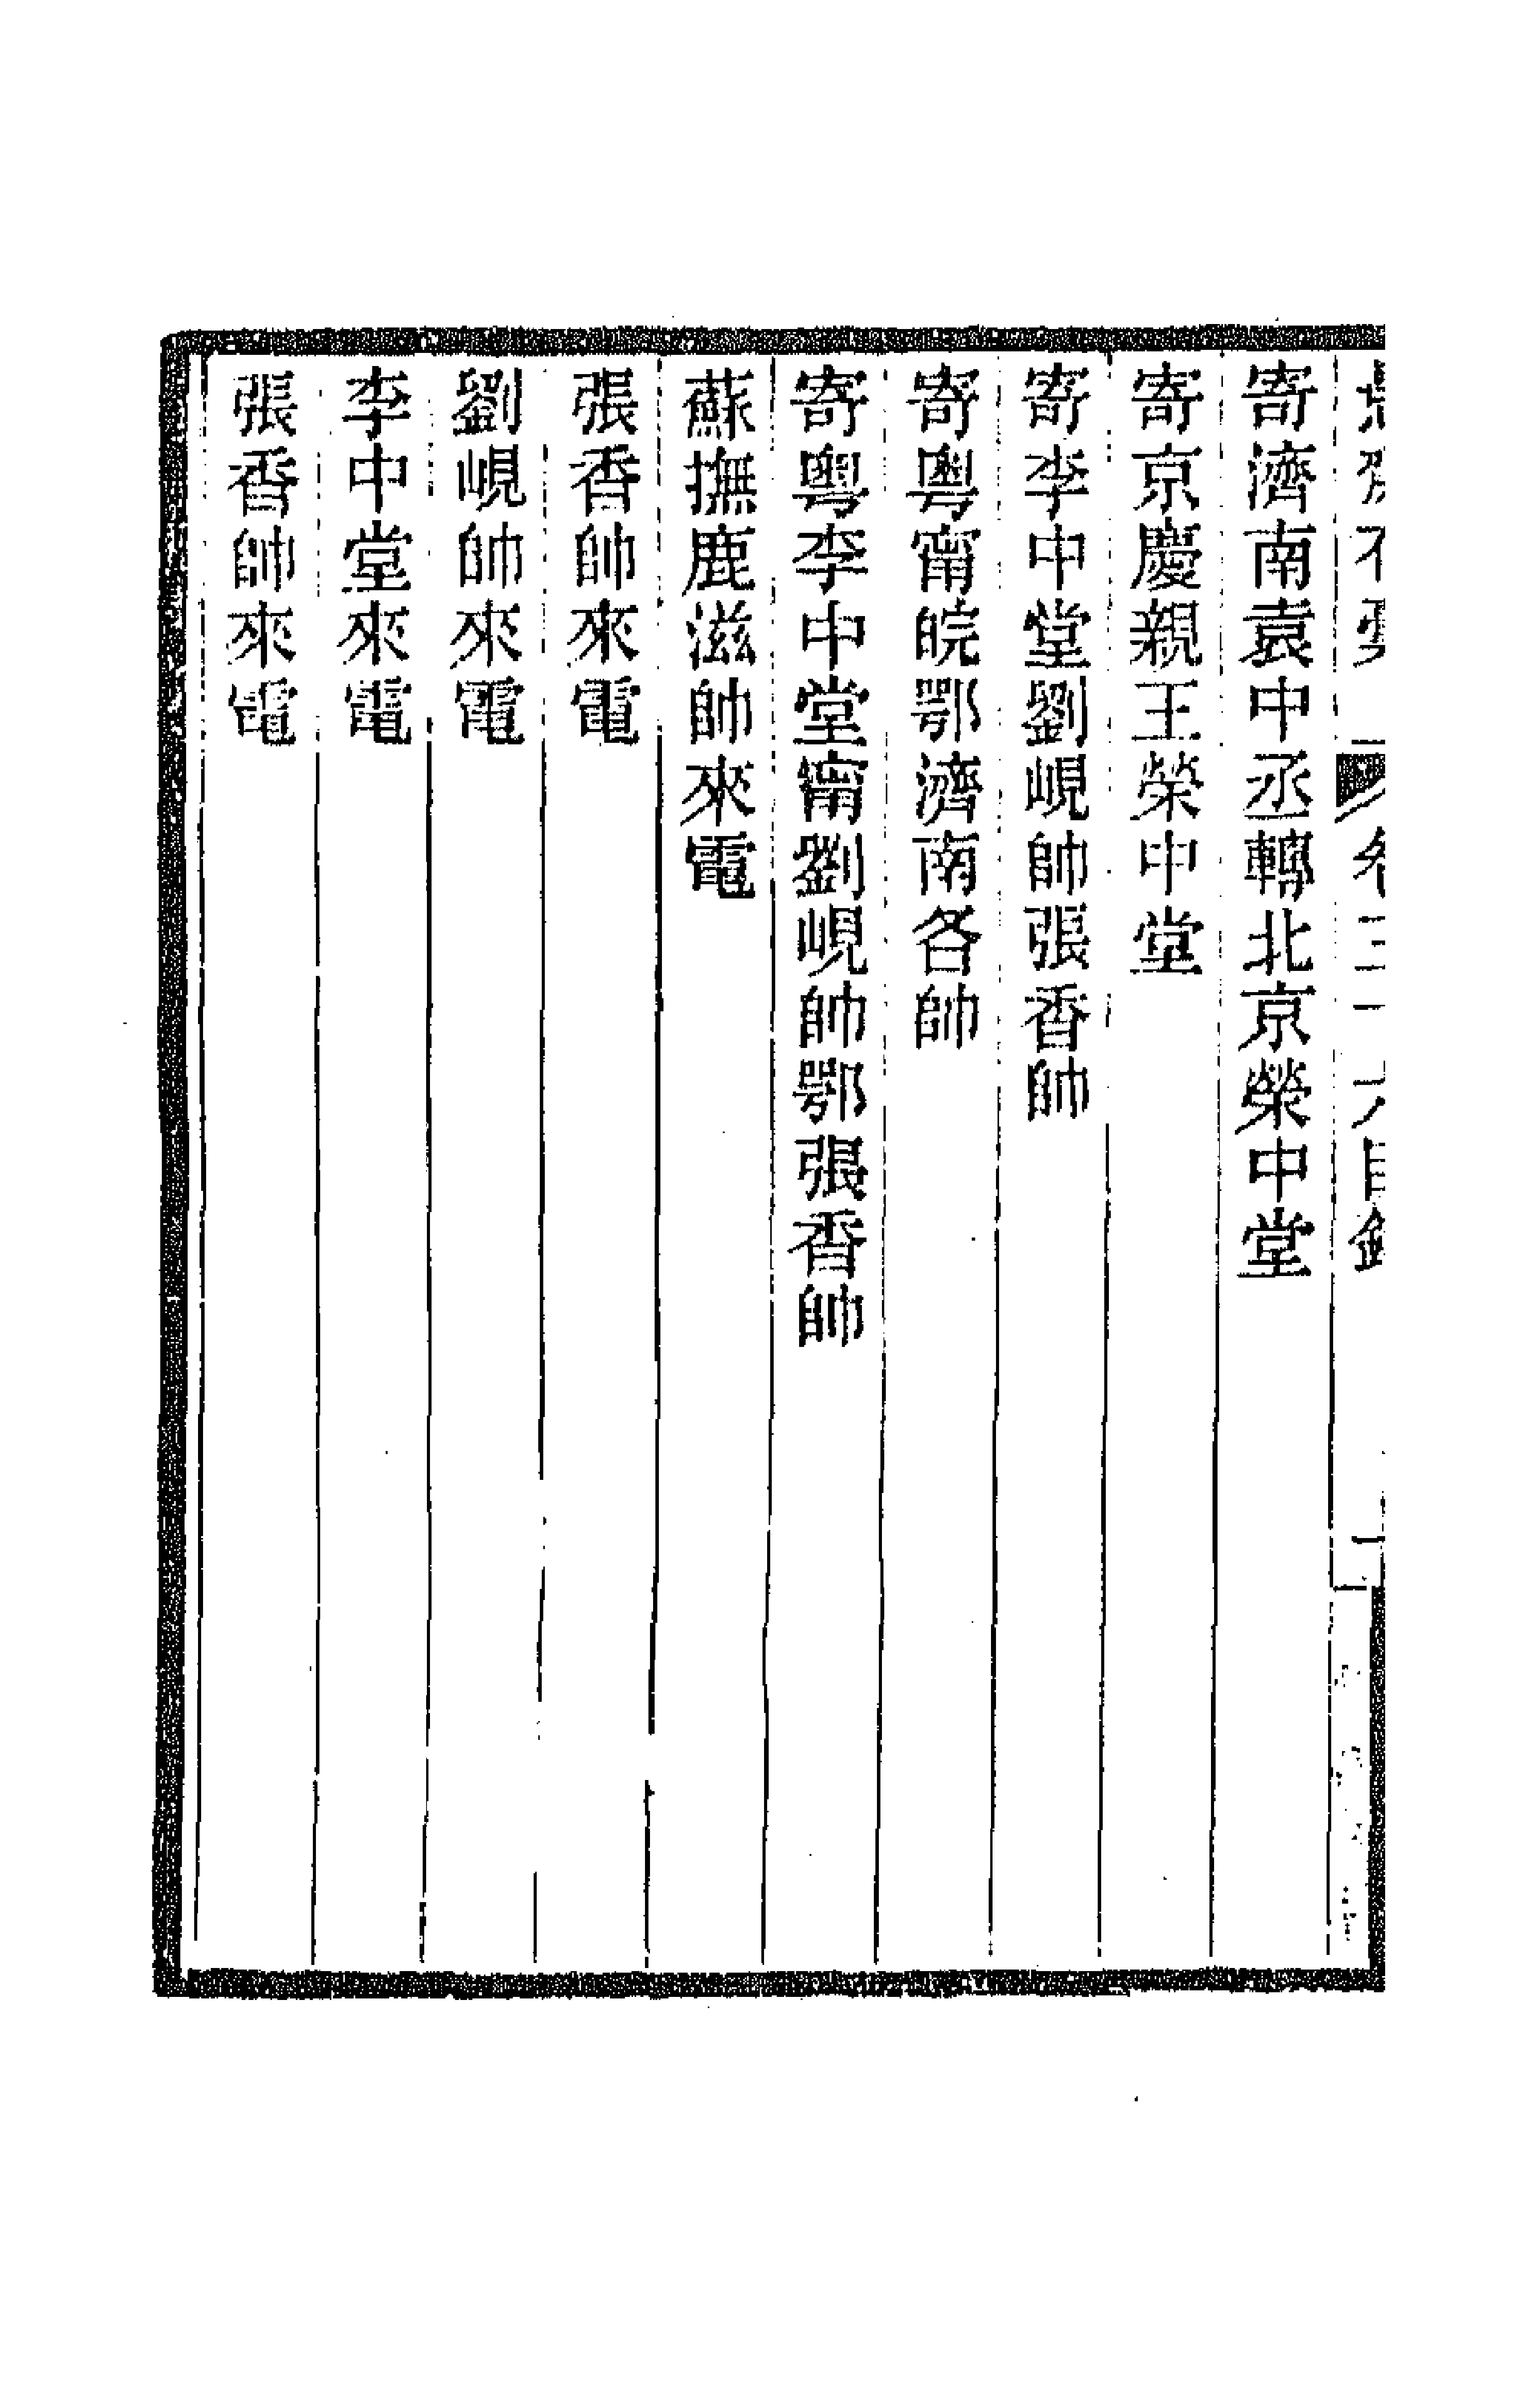 卷三十六目錄
寄濟南袁中丞轉北京榮中堂
寄京慶親王榮中堂
寄李中堂劉峴帥張香帥
寄粵甯皖鄂濟南各帥
寄粵李中堂甯劉峴帥鄂張香帥
蘇撫鹿滋帥來電
張香帥來電
劉峴帥來電
李中堂來電
張香帥來電